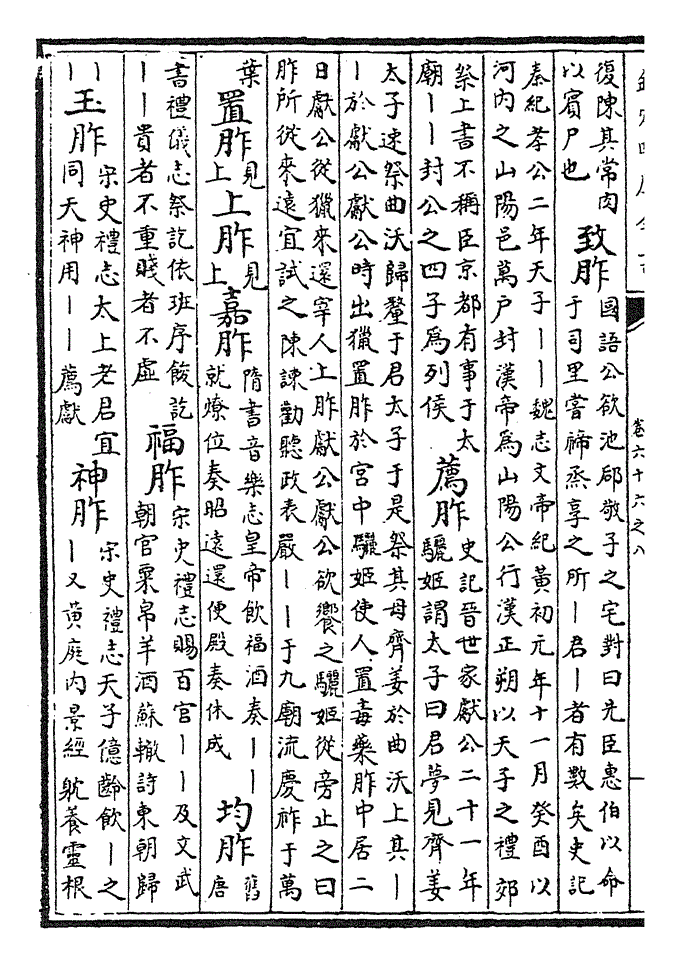 卷六十六之八
復陳其常肉
以賓尸也
致胙
國語公欲池郈敬子之宅對曰先臣惠伯以命
于司里嘗禘烝享之所｜君｜者有數矣史記
秦紀孝公二年天子｜｜魏志文帝紀黃初元年十一月癸酉以
河内之山陽邑萬户封漢帝爲山陽公行漢正朔以天子之禮郊
祭上書不稱臣京都有事于太
廟｜｜封公之四子爲列侯
薦胙
史記晉世家獻公二十一年
驪姬謂太子曰君夢見齊姜
太子速祭曲沃歸釐于君太子于是祭其母齊姜於曲沃上其｜
｜於獻公獻公時出獵置胙於宮中驪姬使人置毒藥胙中居二
日獻公從獵來還宰人上胙獻公獻公欲饗之驪姬從旁止之曰
胙所從來遠宜試之陳諫勸聽政表嚴｜｜于九廟流慶祚于萬
葉
置胙
見
上
上胙
見
上
嘉胙
隋書音樂志皇帝飲福酒奏｜｜
就燎位奏昭遠還便殿奏休成
均胙
舊
唐
書禮儀志祭訖依班序餕訖
｜｜貴者不重賤者不虛
福胙
宋史禮志賜百官｜｜及文武
朝官粟帛羊酒蘇轍詩東朝歸
｜｜
玉胙
宋史禮志太上老君宜
同天神用｜｜薦獻
神胙
宋史禮志天子億齡飲｜之
｜又黃庭内景經躭養靈根